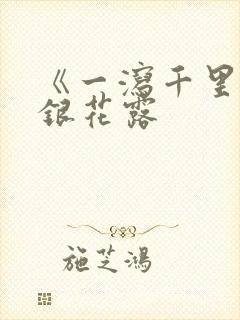 《一瀉千里
銀花露
施芝鴻